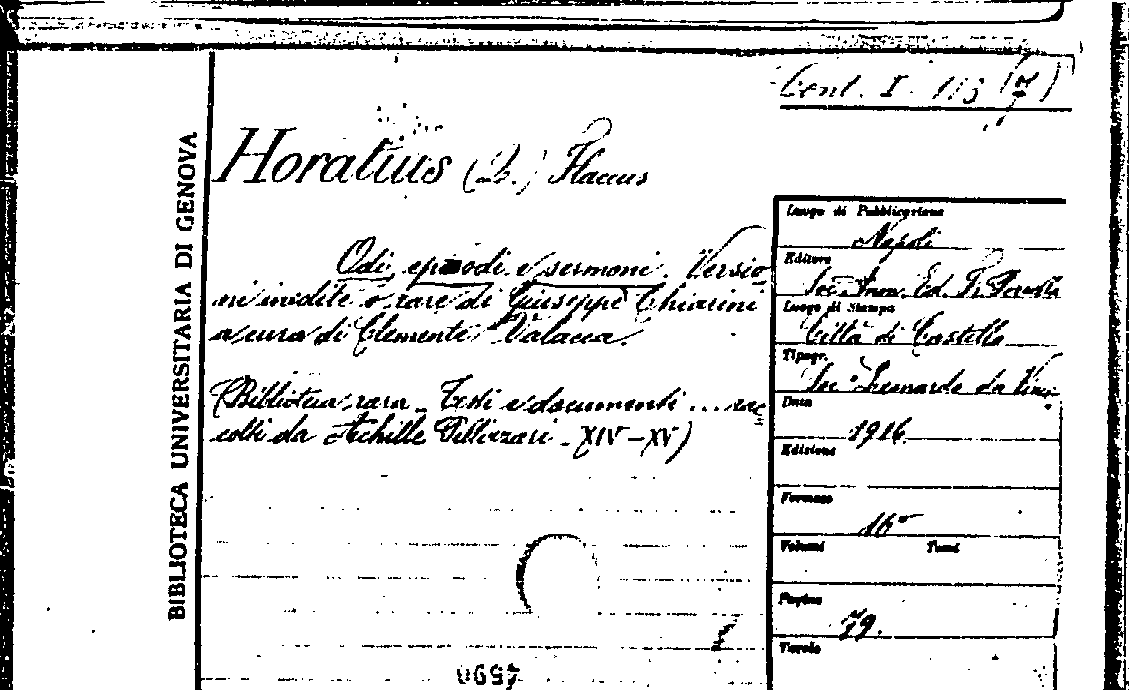 Cont. I. 113 (7)
BIBLIOTECA UNIVERSITARIA DI GENOVA
Horatius (Q.) Flaccus
Odi, epodi e sermoni. Versio
ni inedite o rare di Giuseppe Chiarini
a cura di Clemente Valacca.
(Biblioteca rara - Testi e documenti ... rac
colti da Achille Pellizzari - XIV-XV)
Luogo di Pubblicazione
Napoli
Editore
Soc. Anon. Ed. F. Perrella
Luogo di Stampa
Città di Castello
Tipogr.
Soc. Leonardo da Vinci
Data
1916
Edizione
Formato
16°
Volumi Tomi
Pagine
79.
Tavole